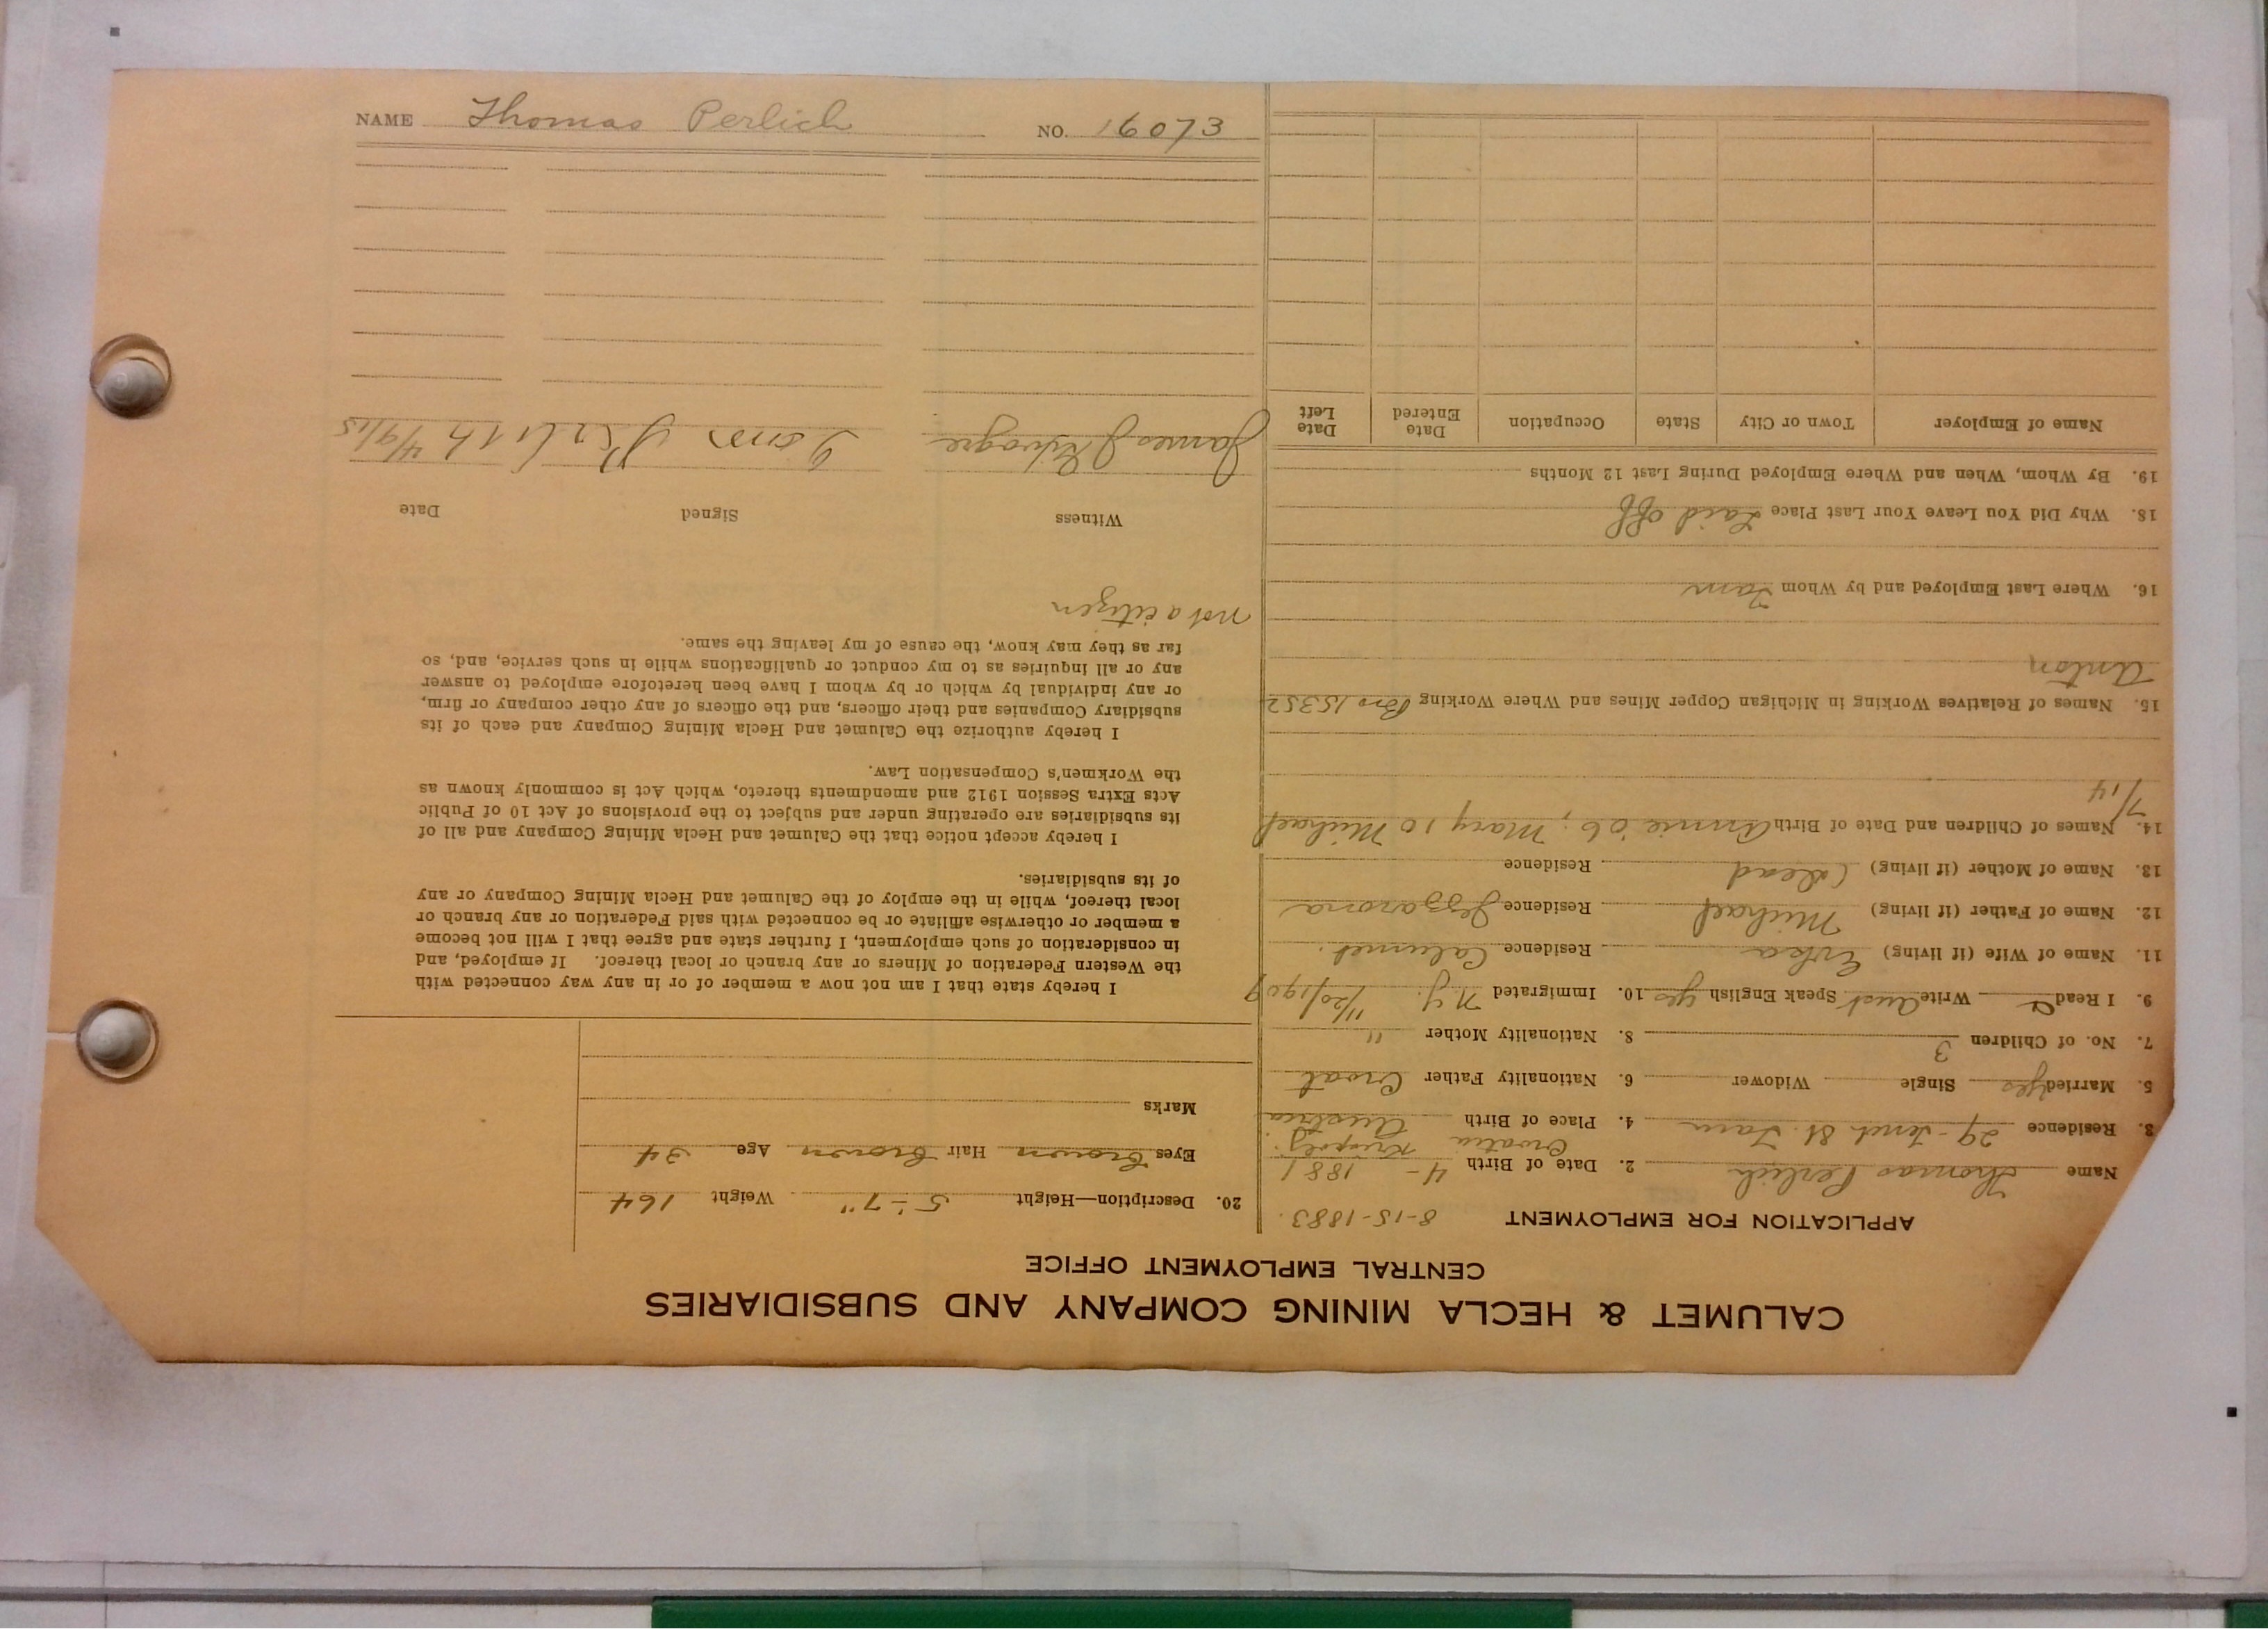 CALUMET & HECLA MINING COMPANY AND SUBSIDIARIES
CENTRAL EMPLOYMENT OFFICE
APPLICATION FOR EMPLOYMENT 8-15-1883.
Name Thomas Perlich 2. Date of Birth 4- 1881
Croatia
3. Residence 29-Tenth St. Tam 4. Place of Birth Austria
5. Married yes Single Widower 6. Nationality Father Croat
7. No. of Children 3 8. Nationality Mother "
9. I Read Write Aust Speak English yes 10. Immigrated N.Y. 11/20/1909
11. Name of Wife (if living) Residence Calumet.
12. Name of Father (if living) Michael Residence
13. Name of Mother (if living) Dead Residence
14. Names of Children and Date of Birth Annie 06, Mary 10 Michael
7/14
15. Names of Relatives Working in Michigan Copper Mines and Where Working Bro 15352
Anton
16. Where Last Employed and by Whom Tam
18. Why Did You Leave Your Last Place Laid off
19. By Whom, When and Where Employed During Last 12 Months
Name of Employer Town or City State Occupation Date Entered Date Left
20. Description—Height 5-7" Weight 164
Eyes Brown Hair Brown Age 34
Marks
I hereby state that I am not now a member of or in any way connected with
the Western Federation of Miners or any branch or local thereof. If employed, and
in consideration of such employment, I further state and agree that I will not become
a member or otherwise affiliate or be connected with said Federation or any branch or
local thereof, while in the employ of the Calumet and Hecla Mining Company or any
of its subsidiaries.
I hereby accept notice that the Calumet and Hecla Mining Company and all of
its subsidiaries are operating under and subject to the provisions of Act 10 of Public
Acts Extra Session 1912 and amendments thereto, which Act is commonly known as
the Workmen's Compensation Law.
I hereby authorize the Calumet and Hecla Mining Company and each of its
subsidiary Companies and their officers, and the officers of any other company or firm,
or any individual by which or by whom I have been heretofore employed to answer
any or all inquiries as to my conduct or qualifications while in such service, and, so
far as they may know, the cause of my leaving the same.
Not a citizen
Witness Signed Date
James J 4/9/15
NAME Thomas Perlich NO. 16073